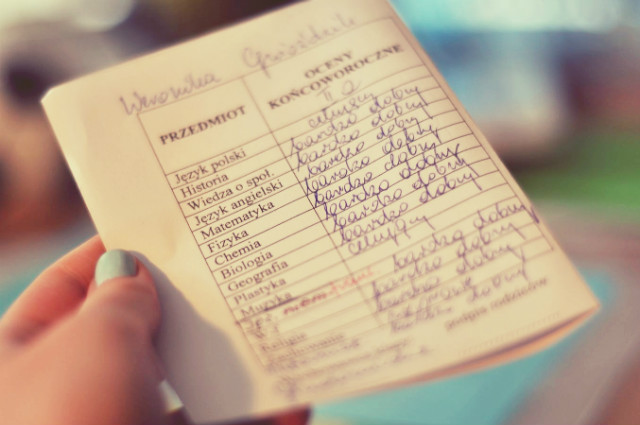 Weronika
PRZEDMIOT OCENY KOŃCOWOROCZNE
Język polski celujący
Historia bardzo dobry
Wiedza o społ. bardzo dobry
Język angielski bardzo dobry
Matematyka bardzo dobry
Fizyka bardzo dobry
Chemia bardzo dobry
Biologia bardzo dobry
Geografia celujący
Plastyka
Muzyka bardzo dobry
bardzo dobry
Religia bardzo dobry
bardzo dobry
podpis rodziców